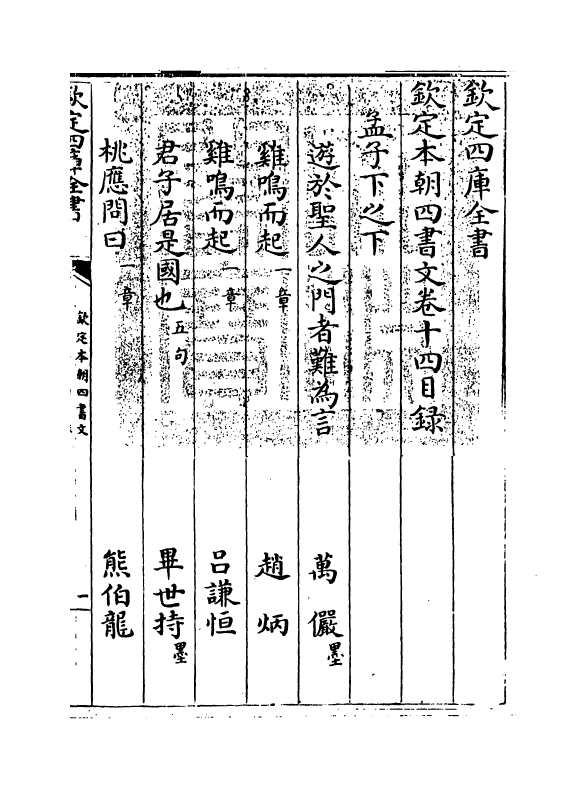 欽定四庫全書
欽定本朝四書文卷十四目録
孟子下之下
遊於聖人之門者難為言 萬儼墨
雞鳴而起一章 趙炳
雞鳴而起一章 呂謙恒
君子居是國也五句 畢世持墨
桃應問曰一章 熊伯龍
欽定四庫全書 欽定本朝四書文 一